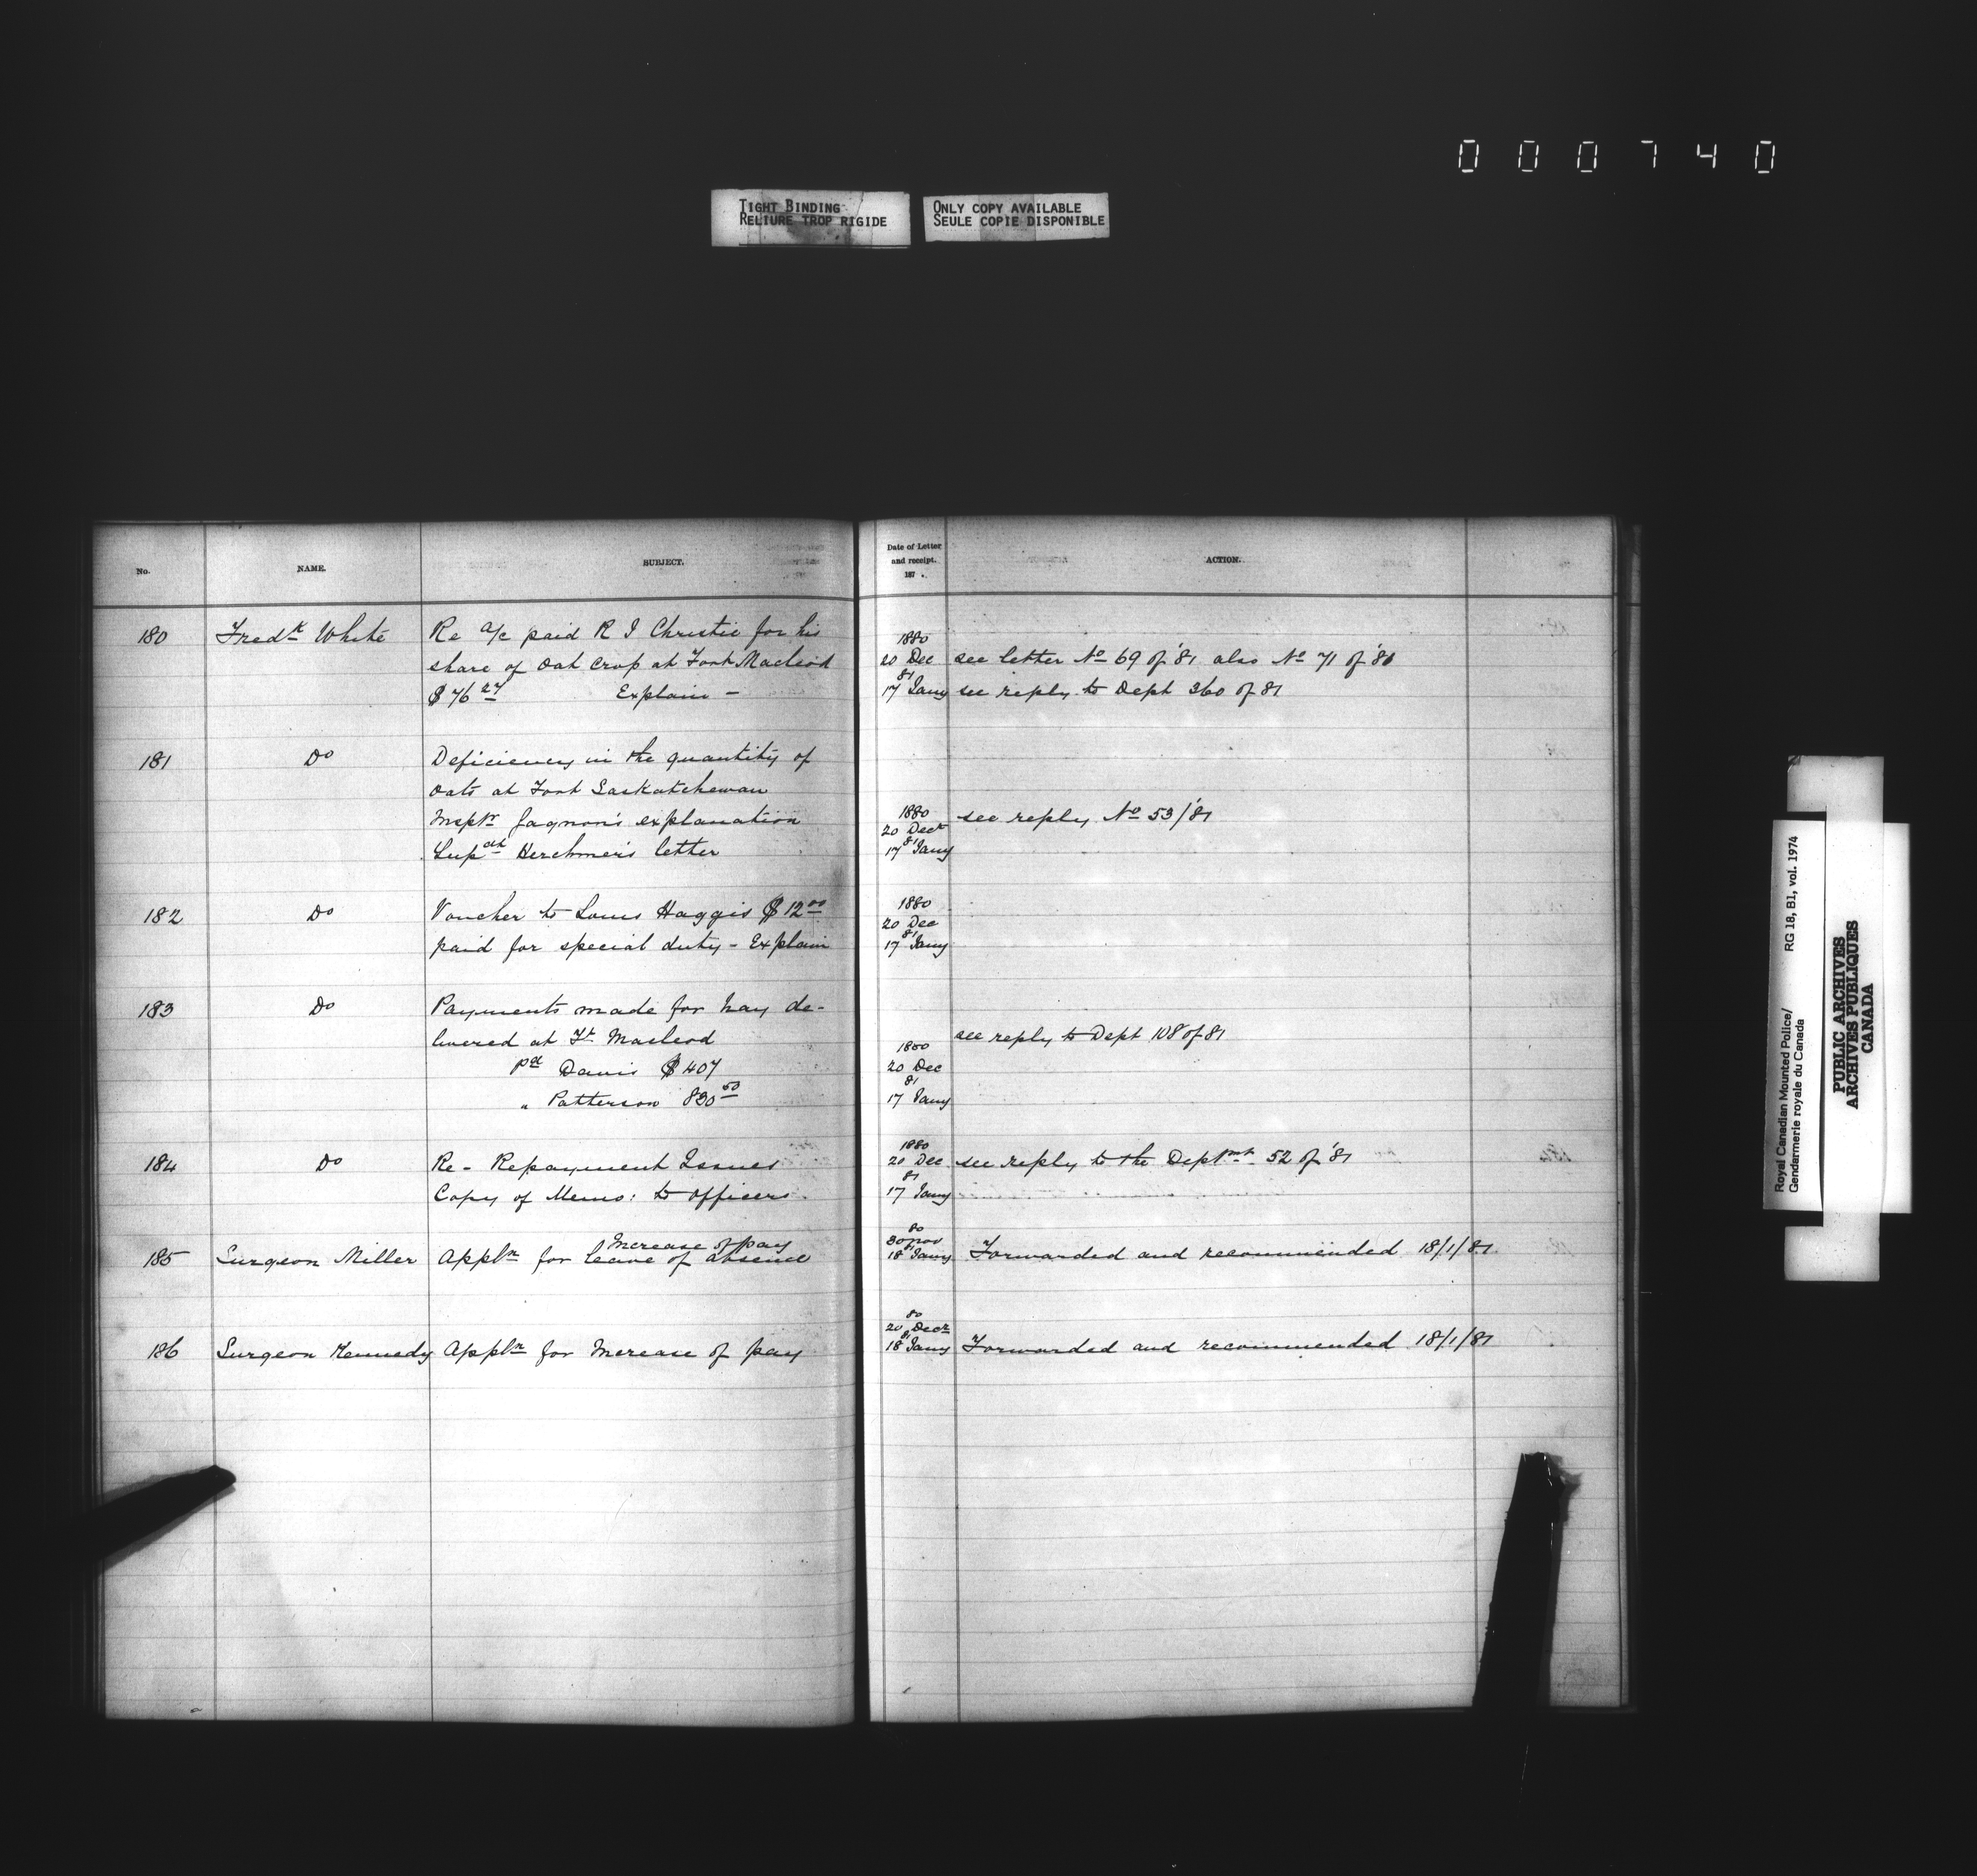 000740
TIGHT BINDING
RELIURE TROP RIGIDE
ONLY COPY AVAILABLE
SEULE COPIE DISPONIBLE
No.
NAME.
SUBJECT.
Date of Letter
and receipt.
187 .
ACTION.
180 Fredk White Re a/c paid R I Christie for his
share of oat crop at Fort Macleod
$76 27 Explain -
1880
20 Dec see letter No 69 of '81 also No 71 of '81
81
17 Jany see reply to Dept 360 of 81
181 Do Deficiency in the quantity of
oats at Fort Saskatchewan
Inspr Gagnon's explanation
Supdt Herchmer's letter
1880
20 Decr see reply No 53/'81
81
17 Jany
182 Do Voucher to Louis Haggis $12 00
paid for special duty - Explain
1880
20 Dec
81
17 Jany
183 Do Payments made for hay de-
livered at Ft Macleod
pd Davis $407
" Patterson 830 50
see reply to Dept 108 of 81
1880
20 Dec
81
17 Jany
184 Do Re - Repayment Issues
Copy of Memo: to officers
1880
20 Dec see reply to the Deptmt 52 of '81
81
17 Jany
185 Surgeon Miller Appln for leave of absence
Increase of pay
80
30 nov
81
18 Jany Forwarded and recommended 18/1/81
186 Surgeon Kennedy Appln for Increase of pay
80
20 Decr
81
18 Jany Forwarded and recommended 18/1/81
Royal Canadian Mounted Police/
Gendarmerie royale du Canada
RG 18, B1, vol. 1974
PUBLIC ARCHIVES
ARCHIVES PUBLIQUES
CANADA